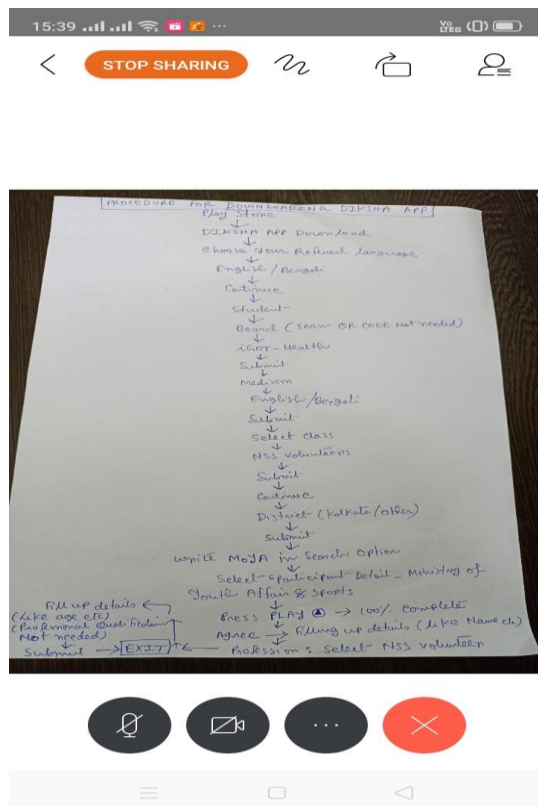 15:39
Vo LTE
STOP SHARING
PROCEDURE FOR DOWNLOADING DIKSHA APP
Play Store
DIKSHA APP Download
Choose your Prefered language
English / Bengali
Continue
Student
Board (Scan QR CODE not needed)
iGOT-Health
Submit
Medium
English/Bengali
Submit
Select class
NSS Volunteers
Submit
Continue
District (Kolkata/other)
Submit
Write MoYA in Search Option
Select participant Detail - Ministry of
Youth Affair & Sports
Press PLAY → 100% complete
Agree → Filling up details (like Name etc)
Profession : Select NSS volunteer
Fill up details
(Like age etc)
(Professional Qualification
Not needed)
Submit → EXIT